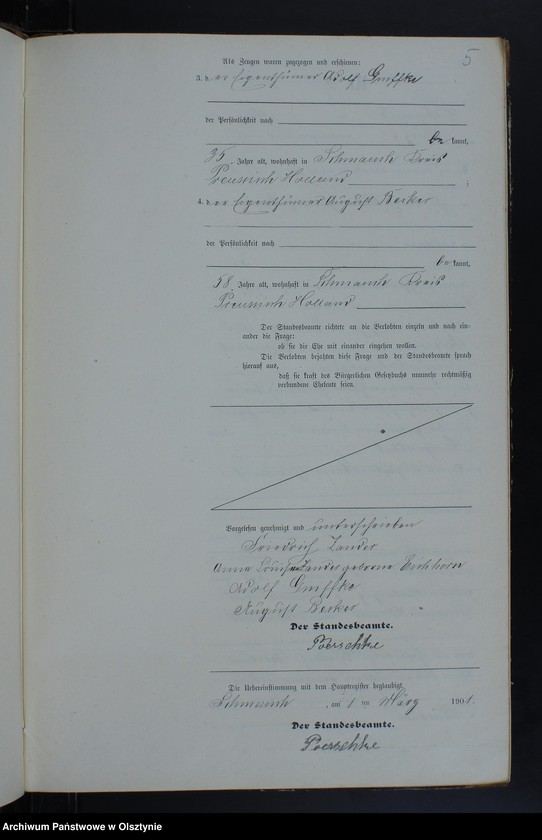 5
Als Zeugen waren zugezogen und erschienen:
3. der Eigenthümer Adolf
der Persönlichkeit nach
be kannt,
35 Jahre alt, wohnhaft in Schmauch Kreis
Preussisch Holland ;
4. der Eigenthümer August Becker
der Persönlichkeit nach
be kannt,
58 Jahre alt, wohnhaft in Schmauch Kreis
Preussisch Holland
Der Standesbeamte richtete an die Verlobten einzeln und nach ein-
ander die Frage:
ob sie die Ehe mit einander eingehen wollen.
Die Verlobten bejahten diese Frage und der Standesbeamte sprach
hierauf aus,
daß sie kraft des Bürgerlichen Gesetzbuchs nunmehr rechtmäßig
verbundene Eheleute seien.
Vorgelesen genehmigt und unterschrieben
Friedrich Zander
Anna Louise Zander geborne Eichhorn
Adolf
August Becker
Der Standesbeamte.
Poerschke
Die Uebereinstimmung mit dem Hauptregister beglaubigt
Schmauch , am 1 ten März 1901.
Der Standesbeamte.
Poerschke
Archiwum Państwowe w Olsztynie